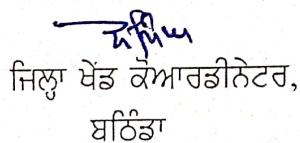 ਜਿਲ੍ਹਾ ਖੇਡ ਕੋਆਰਡੀਨੇਟਰ,
ਬਠਿੰਡਾ